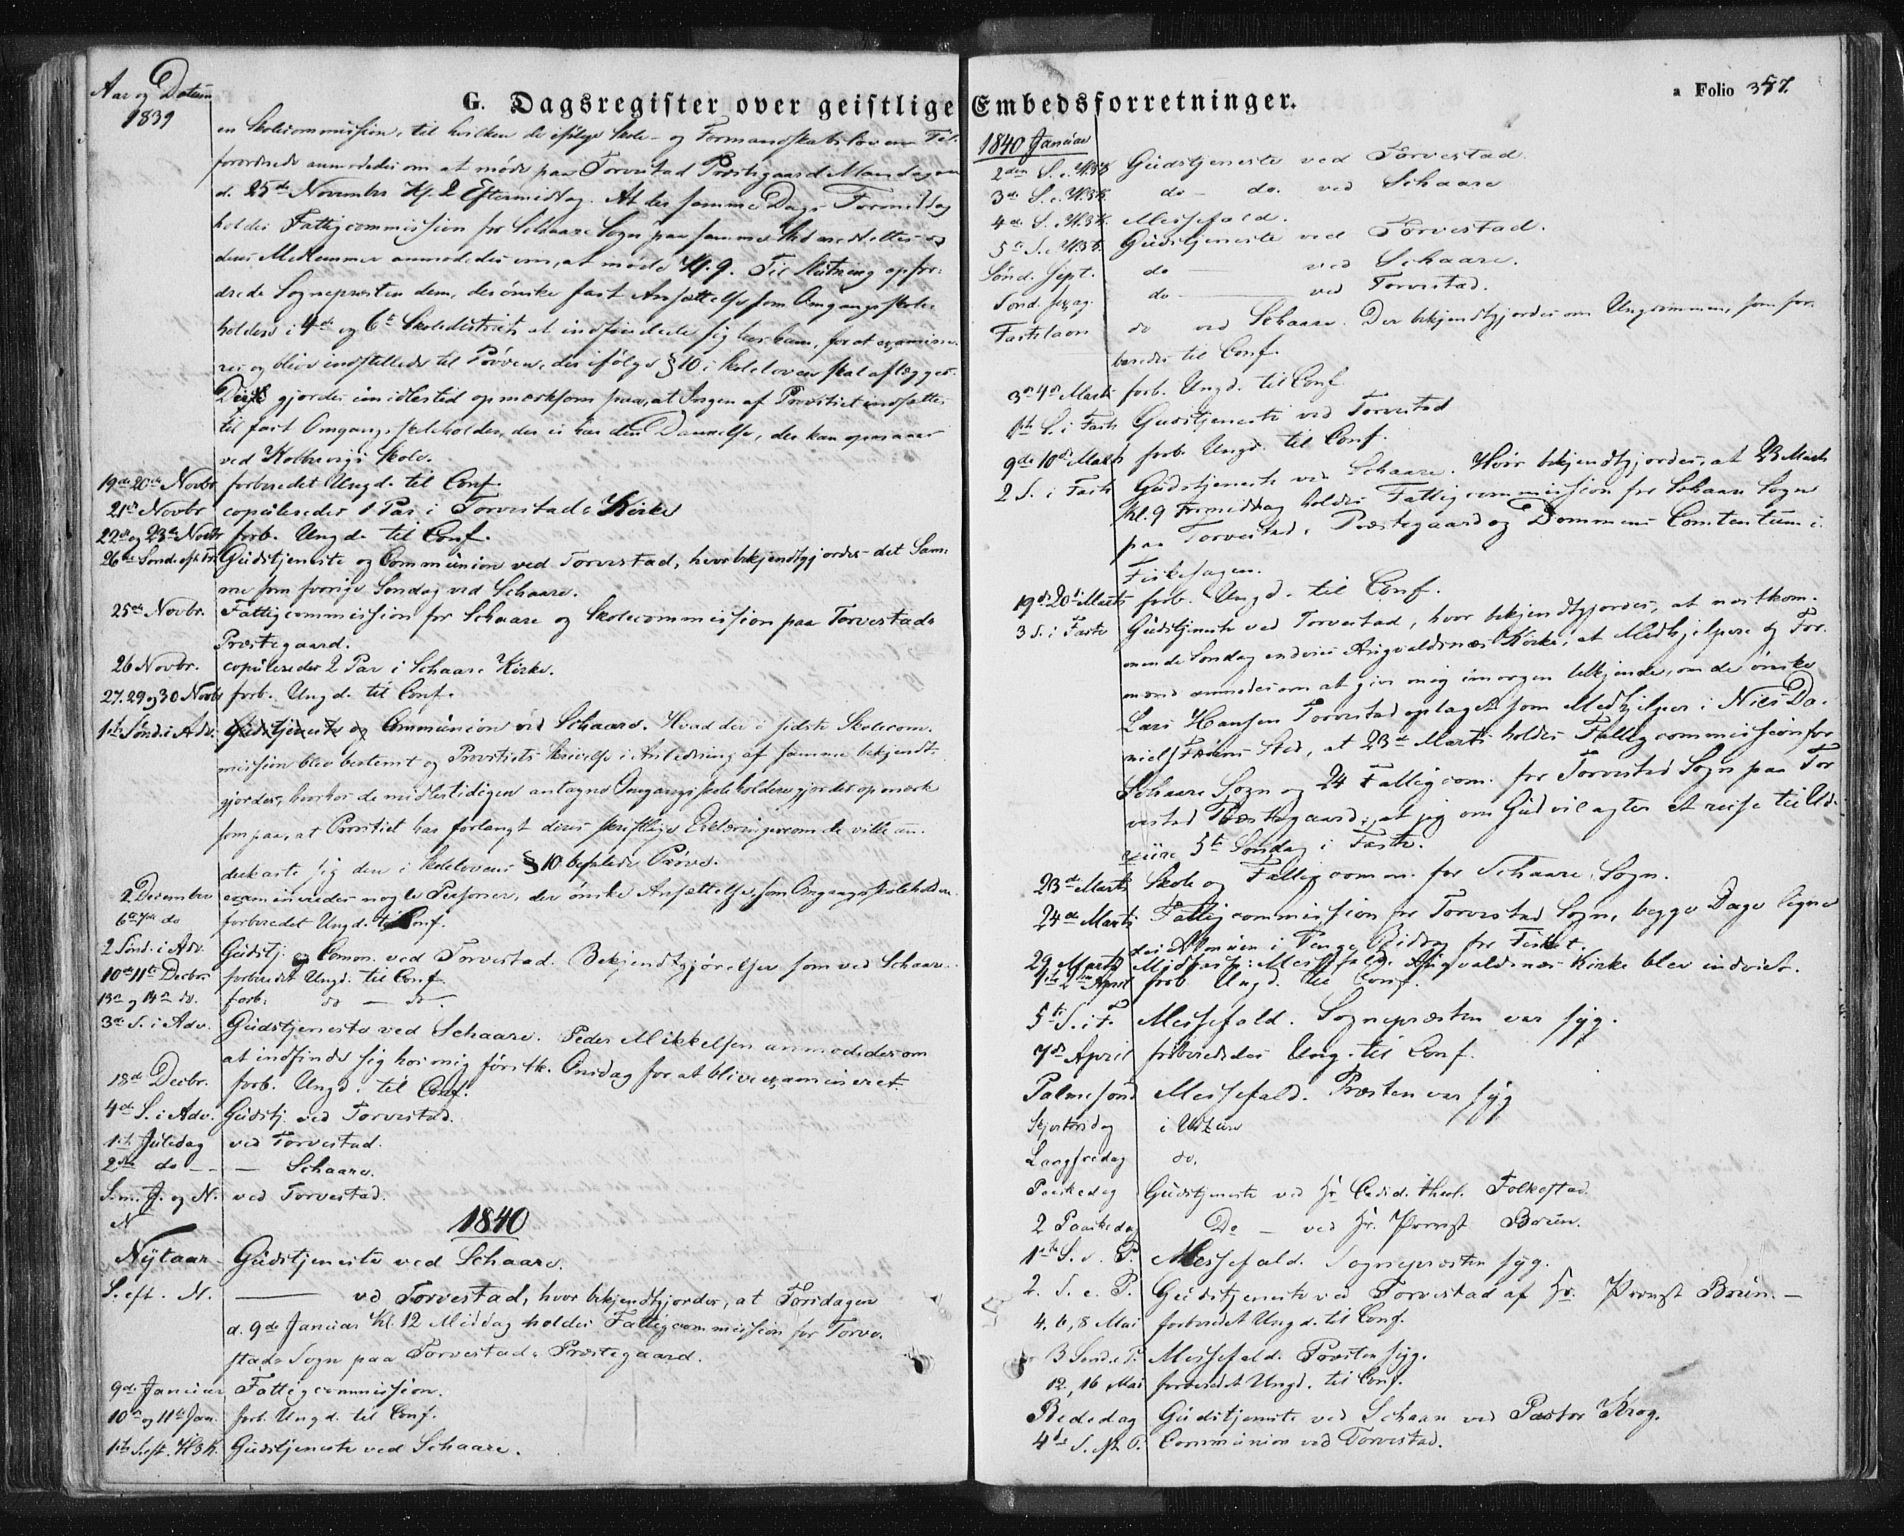 G. Dagsregister over geistlige Embedsforretninger.
a Folio 357.
Aar og Datum
1839
en Skolecommission, til hvilken de ifølge Skole- og Formandskabsloven Til-
forordnede anmodedes om at møde paa Torvestad Præstegaard Mandagen
d. 25de Novembr Kl. 2 Eftermiddag. At der samme Dags Formiddag
holdes Fattigcommission for Schaare Sogn paa samme Sted
deres Medlemmer anmodedes om, at møde Kl. 9. Til Slutning opfor-
drede Sognepræsten dem, der ønske fast Ansættelse som Omgangsskole-
holdere i 4de og 6te Skoledistrict at indfinde sig hos ham, for at examine-
res og blive indstillede til Prøven, der ifølge §10 i Skoleloven skal aflægges.
gjordes imidlertid opmærksom paa, at Ingen af Provstiet indsættes
til fast Omgangsskoleholder, der ei har den Dannelse, der kan opnaaes
ved Kolbervigs Skole.
19de 20de Novbr. forberedet Ungd. til Conf.
21de Novbr. copuleredes 1 Par i Torvestads Kirke
22de og 23de Novbr forb. Ungd. til Conf.
26de Sønd. eft. Tr. Gudstjeneste og Communion ved Torvestad, hvor bekjendtgjordes det Sam-
me som forrige Søndag ved Schaare.
25de Novbr. Fattigcommission for Schaare og Skolecommission paa Torvestads
Præstegaard.
26 Novbr. copuleredes 2 Par i Schaare Kirke.
27. 29 og 30 Novbr forb. Ungd. til Conf.
1ste Sønd. i Adv. Gudstjeneste og Communion ved Schaare. Hvad der i sidste Skolecom-
mission blev bestemt og Provstiets Skrivelse i Anledning af samme bekjendt-
gjordes, hvorhos de midlertidigen antagne Omgangsskoleholdere gjordes opmærk-
som paa, at Provstiet har forlangt deres skriftlige Erklæringer om de ville un-
derkaste sig den i Skolelovens §10 befalede Prøve.
2 December examineredes nogle Personer, der ønske Ansættelse som Omgangsskoleholdere.
6te 7de do forberedet Ungd. til Conf.
2 Sønd. i Adv. Gudstj. og Comm. ved Torvestad. Bekjendtgjørelser som ved Schaare.
10de 11te Decbr forberedet Ungd. til Conf.
13de og 14de do. forb. do — do.
3de S. i Adv. Gudstjeneste ved Schaare. Peder Mikkelsen anmodedes om
at indfinde sig hos mig førstk. Onsdag for at blive examineret.
18de Decbr. forb. Ungd. til Conf.
4de S. i Adv. Gudstj. ved Torvestad.
1ste Juledag ved Torvestad.
2den do — — Schaare.
S. m. J. og N. ved Torvestad.
N
1840
Nytaar - Gudstjeneste ved Schaare.
S. eft. N. — ved Torvestad, hvor bekjendtgjordes, at Torsdagen
d. 9de Januar Kl. 12 Middag holdes Fattigcommission for Torve-
stads Sogn paa Torvestads Præstegaard.
9de Januar Fattigcommission.
10de og 11te Jan. forb. Ungd. til Conf.
1ste S. eft. H3K. Gudstjeneste ved Schaare.
1840 Januar
2den S. e. H3K Gudstjeneste ved Torvestad.
3de S. e. H3K. do — do. ved Schaare
4de S. H3K. Messefald.
5te S. e. H3K. Gudstjeneste ved Torvestad.
Sønd. Sept. do — ved Schaare.
Sønd. Sexag. do — ved Torvestad.
Fastelavn do ved Schaare. Der bekjendtgjordes om Ungdommen, som for-
beredes til Conf.
3de 4de Marts forb. Ungd. til Conf.
1ste S. i Faste Gudstjeneste ved Torvestad
9de 10de Marts forb. Ungd. til Conf.
2 S. i Faste Gudstjeneste ved Schaare. Hvor bekjendtgjordes, at 23 Marts
Kl. 9 Formiddag holdes Fattigcommission for Schaare Sogn
paa Torvestads Præstegaard og Dommens Contentum i
Fiskesagen.
19de 20de Marts forb. Ungd. til Conf.
3 S. i Faste Gudstjeneste ved Torvestad, hvor bekjendtgjordes, at næstkom-
mende Søndag indvies Augvaldsnæs Kirke, at Medhjelpere og For-
mænd anmodes om at give mig imorgen tilkjende, om de ønske
Lars Hansen Torvestad optaget som Medhjelper i Niels Da-
niels Sted, at 23de Marts holdes Fattigcommission for
Schaare Sogn og 24 Fattigcom. for Torvestad Sogn paa Tor-
vestad Præstegaard, at jeg om Gud vil agter at reise til Ud-
5te Søndag i Faste.
23de Marts Skole og Fattigcomm. for Schaare Sogn.
24de Marts Fattigcommission for Torvestad Sogn, begge Dage lignes
der Almuen i Penge Bidrag for Fisket.
29 Marts Midfaste: Messefald. Augvaldsnæs Kirke blev indviet.
1ste 2den April forb. Ungd. til Conf.
5te S. i F. Messefald. Sognepræsten var syg.
7de April forberedes Ung. til Conf.
Palmesønd Messefald. Præsten var syg
Skjertorsdag i Utzire
Langfredag do.
Paaskedag Gudstjeneste ved Hr Cadid. theol. Folkestad.
2 Paaskedag Do — ved Hr. Provst Bruun.
1ste S. e. P. Messefald. Sognepræsten syg.
2. S. e. P. Gudstjeneste ved Torvestad af Hr. Provst Bruun. —
4. 6, 8 Mai forberedet Ungd. til Conf.
3 Sønd. e P. Messefald. Præsten syg.
12, 16 Mai forberedet Ungd. til Conf.
Bededag Gudstjeneste ved Schaare ved Pastor Krog.
4de S. eft P. Communion ved Torvestad.